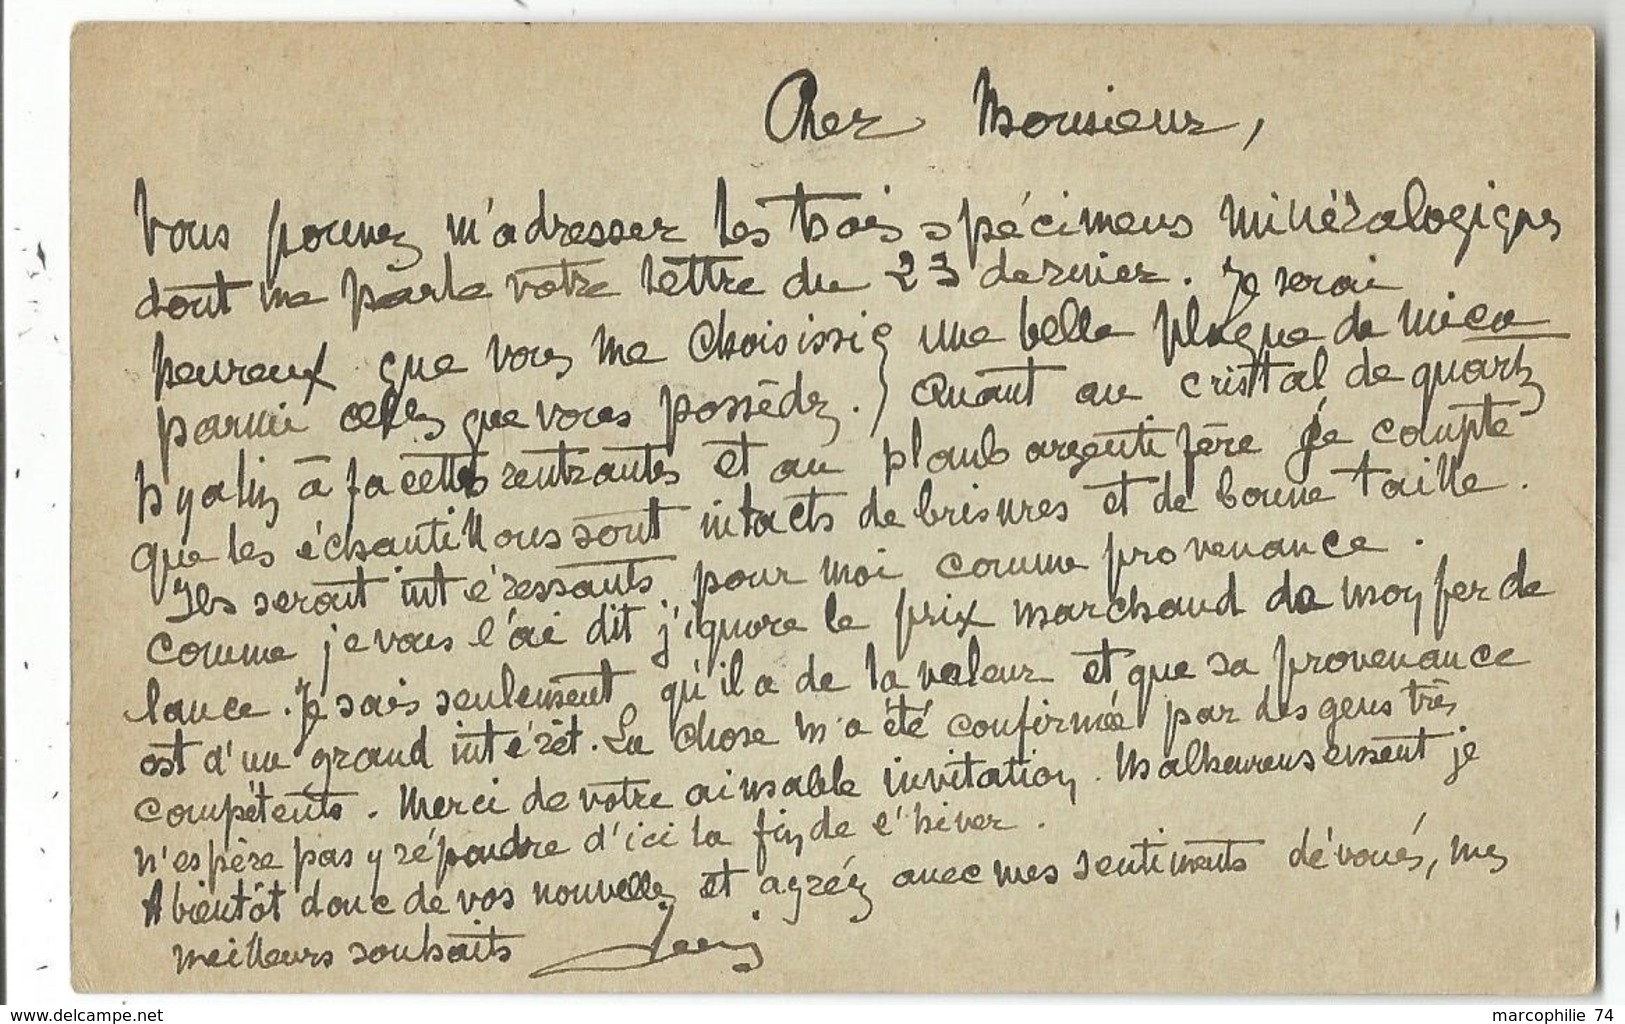 Cher Monsieur,
Vous pouvez m'adresser les trois spécimens minéralogiques
dont me parle votre lettre du 23 dernier. Je serai
heureux que vous me choisissiez une belle plaque de mica
parmi celles que vous possédez. Quant au cristal de quartz
hyalin à facettes rentrantes et au plomb argentifère je compte
que les échantillons sont intacts de brisures et de bonne taille.
Ils seront intéressants pour moi comme provenance.
Comme je vous l'ai dit j'ignore le prix marchand de mon fer de
lance. Je sais seulement qu'il a de la valeur et que sa provenance
est d'un grand intérêt. La chose m'a été confirmée par des gens très
compétents. Merci de votre aimable invitation. Malheureusement je
n'espère pas y répondre d'ici la fin de l'hiver.
A bientôt donc de vos nouvelles et agréez avec mes sentiments dévoués, mes
meilleurs souhaits
www.delcampe.net
marcophilie 74